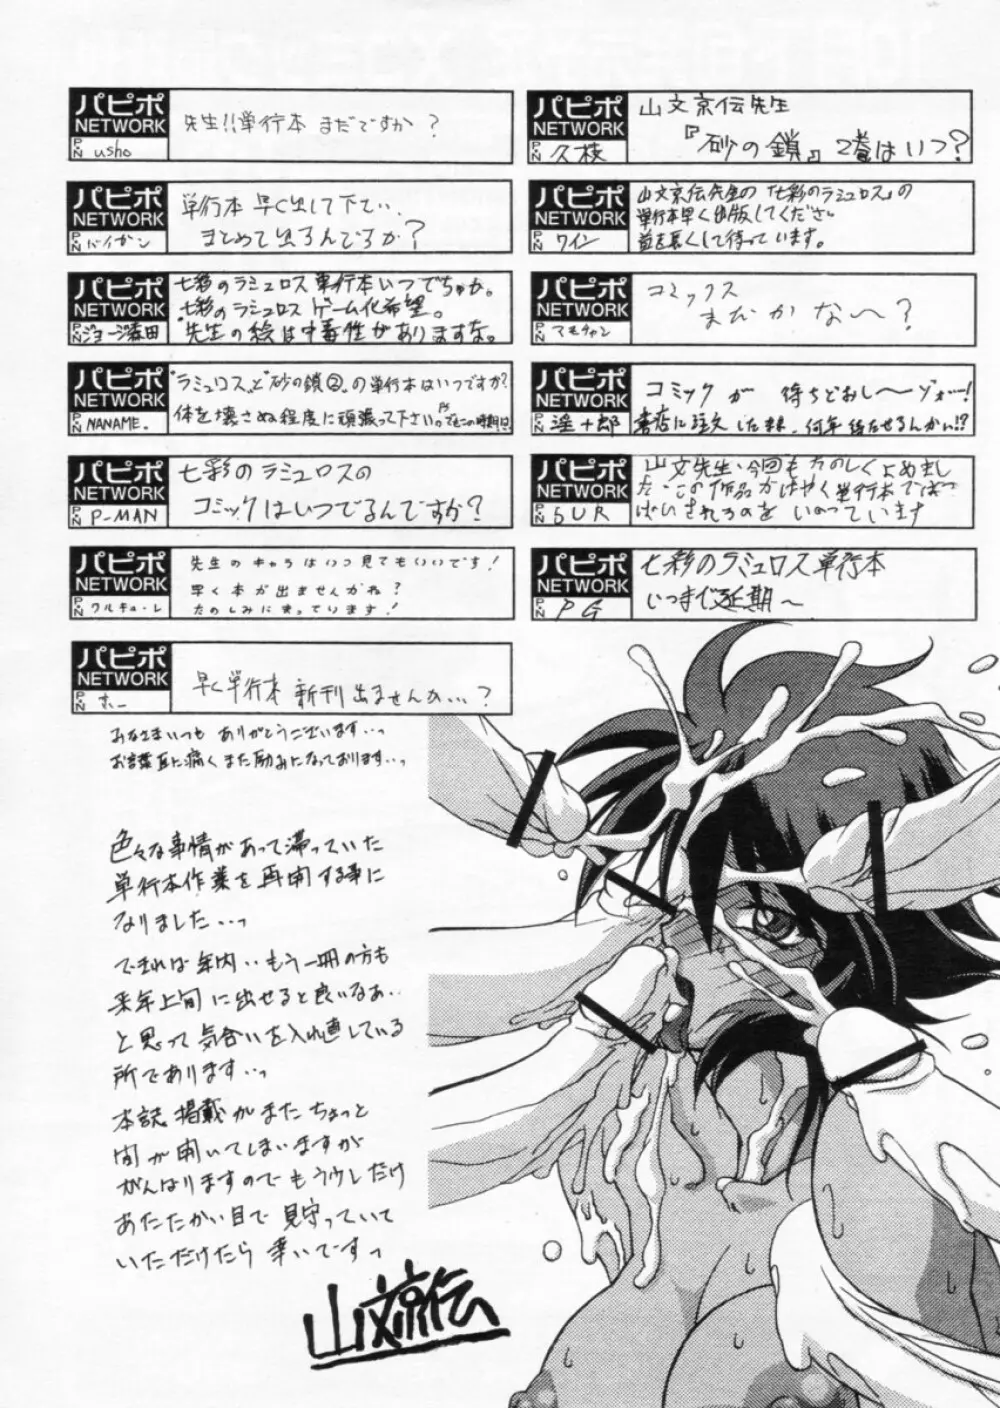 パピポ
NETWORK
P.N
usho
先生!!単行本 まだですか?
パピポ
NETWORK
P.N
久枝
山文京伝先生
『砂の鎖』2巻はいつ?
パピポ
NETWORK
P.N
バイガン
単行本 早く出して下さい..
まとめて出るんですか?
パピポ
NETWORK
P.N
ワイン
山文京伝先生の「七彩のラミュロス」の
単行本早く出版してくださ。
首を長くして待っています。
パピポ
NETWORK
P.N
ジョージ森田
七彩のラミュロス単行本いつでちゅか。
七彩のラミュロスゲーム化希望。
先生の絵は中毒性がありますな。
パピポ
NETWORK
P.N
マモチャン
コミックス
まだかな〜?
パピポ
NETWORK
P.N
NANAME.
"ラミュロス"と"砂の鎖②"の単行本はいつですか?
体を壊さぬ程度に頑張って下さい。
パピポ
NETWORK
P.N
淫十郎
コミックが 待ちどおし〜ゾォー!
書店に注文したまま、何年待たせるんかい!?
パピポ
NETWORK
P.N
P-MAN
七彩のラミュロスの
コミックはいつでるんですか?
パピポ
NETWORK
P.N
bUR
山文先生・今回もたのしくよめまし
た・この作品がはやく単行本ではつ
ばいされるのをいのっています
パピポ
NETWORK
P.N
ワルキューレ
先生のキャラはいつ見てもいいです!
早く本が出ませんかね?
たのしみにまっています!
パピポ
NETWORK
P.N
PG
七彩のラミュロス単行本
いつまで延期〜
パピポ
NETWORK
P.N
ホー
早く単行本 新刊出ませんか...?
みなさまいつも ありがとうございます..っ
お言葉耳に痛く また励みになっております..っ
色々な事情があって滞っていた
単行本作業を再開する事に
なりました..っ
できれば年内..もう一冊の方も
来年上旬に出せると良いなあ..
と思って気合いを入れ直している
所であります..っ
本誌掲載がまたちょっと
間が開いてしまいますが
がんばりますのでもう少しだけ
あたたかい目で見守っていて
いただけたら幸いですっ
山文京伝